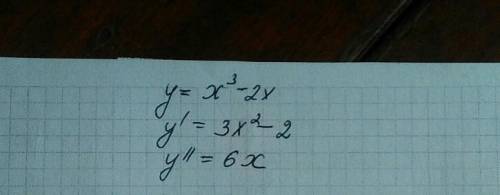 y = x³ - 2x
y' = 3x² - 2
y'' = 6x